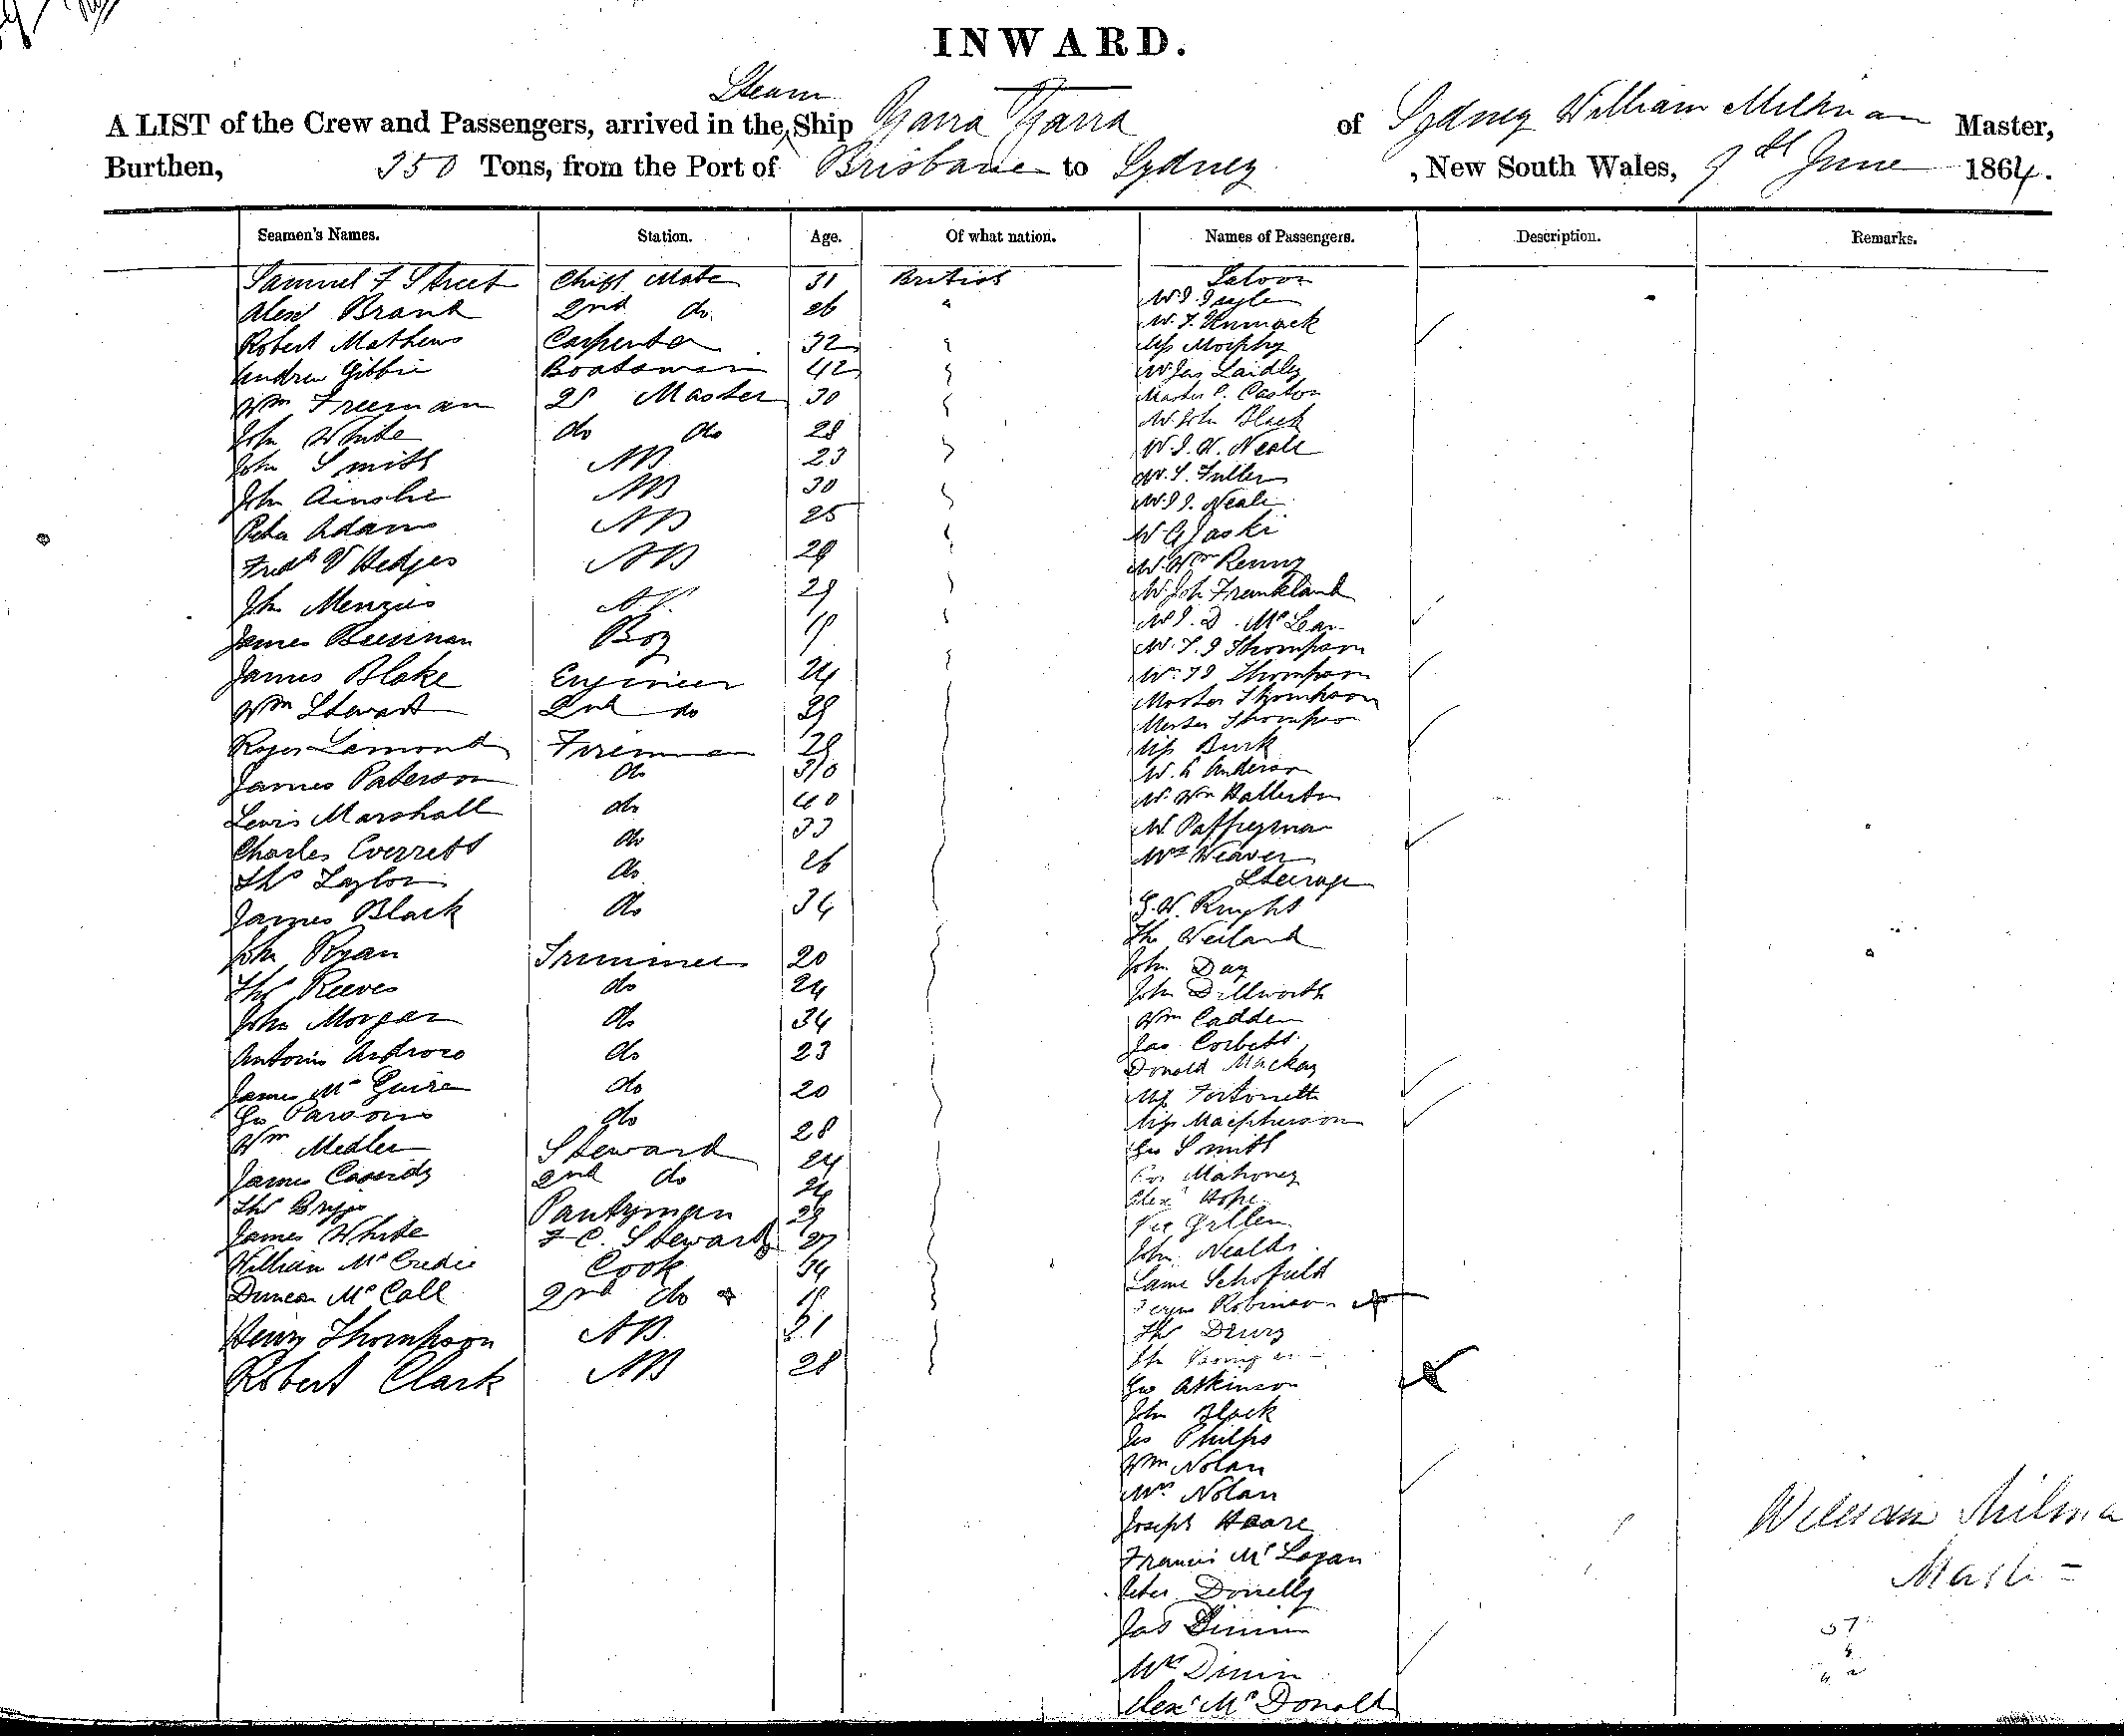 INWARD.
Steam
A LIST of the Crew and Passengers, arrived in the Ship Yarra Yarra of Sydney William Milman Master,
Burthen, 350 Tons, from the Port of Brisbane to Sydney, New South Wales, 9th June 1864.
Seamen's Names. Station. Age. Of what nation. Names of Passengers. Description. Remarks.
Samuel F Street Chief Mate 31 British Saloon
Alexr Brank 2nd do. 26 "
Robert Mathews Carpenter 32 Miss Morphy
Andrew Gibbie Boatsman 42 Mr Jas Laidley
Wm Freeman 2r Master 30 Master C. Caston
John White do do 28 Mr John Black
John Smith AB 23 Mr J. H. Neale
John Ainslie AB 30 Mr S. Fuller
Peter Adams AB 25 Mr J J. Neale
Fredk V Hedges AB 29 Mr Wm Renny
Jhn Menzies AB 29 Mr Joh Frankland
James Boy Mr J. D. McLean
Mr T. J Thompson
James Blake Engineer 24 Thompson
Master Thompson
Wm Stewart 2nd do 29 Master Thompson
Roger Lamond Fireman 28 Miss Burk
James Paterson do 30 Mr Anderson
Lewis Marshall do 40 Mr Wm Hallerton
Charles Everrett do 33 Mr Palfreyman
Thos Taylor do 26 Mrs Weaver
Steerage
James Black do 34 G. W. Knight
Thos Weiland
John Ryan Trimmer 20 John Day
Thos Reeves do 24 John Dillworth
John Morgan do 34 Wm Cadden
Jas Corbett
Antonio do 23 Donald Mackay
James McGuire do 20
Geo Parsons do Miss Macpherson
Wm Medler Steward 28 Geo Smith
James Cassidy 2nd do 24 Mahoney
Thos Briggs Pantryman 24 Alexr Hope
James White F C. Steward 29 Gillen
William McCredie Cook 27 John Nealds
Duncan McCall 2nd do 34 Schofield
Robinson
Henry Thompson AB 21 Thos Drury
Robert Clark AB 28
Geo Atkinson
John Black
Jas Philps
Wm Nolan
Mrs Nolan
Joseph Hoare
Francis McLogan
Peter Donelly
Jas Dinin
Mrs Dinin
Alexr McDonald
William Milman
Master
57